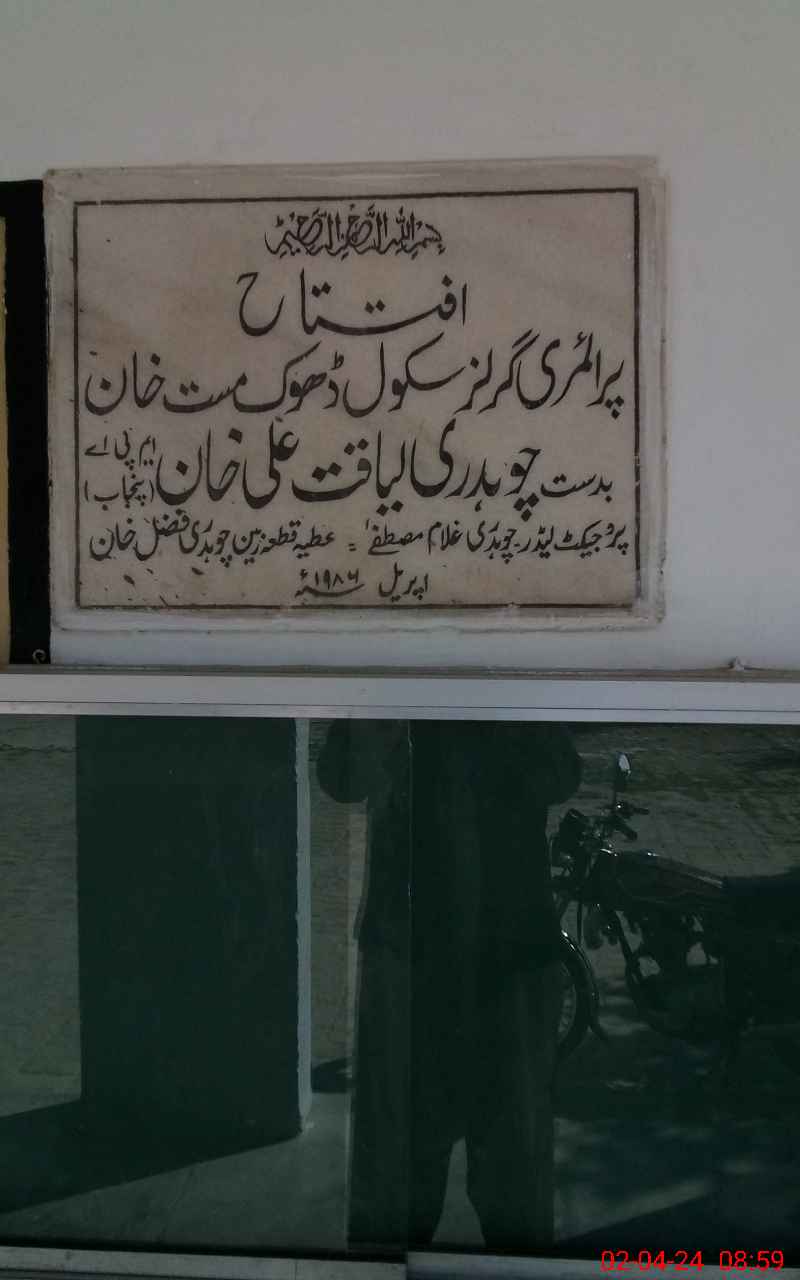 بسم اللہ الرحمن الرحیم
افتتاح
پرائمری گرلز سکول ڈھوک مست خان
بدست چوہدری لیاقت علی خان ایم پی اے (پنجاب)
پروجیکٹ لیڈر۔ چوہدری غلام مصطفےٰ = عطیہ قطعہ زمین چوہدری فضل خان
اپریل ۱۹۸۶ء
02-04-24 08:59